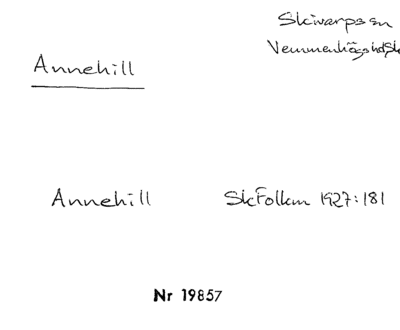 Skivarps sn
Vemmenhögs hd Sk
Annehill
Annehill SkFolkm 1927:181
Nr 19857